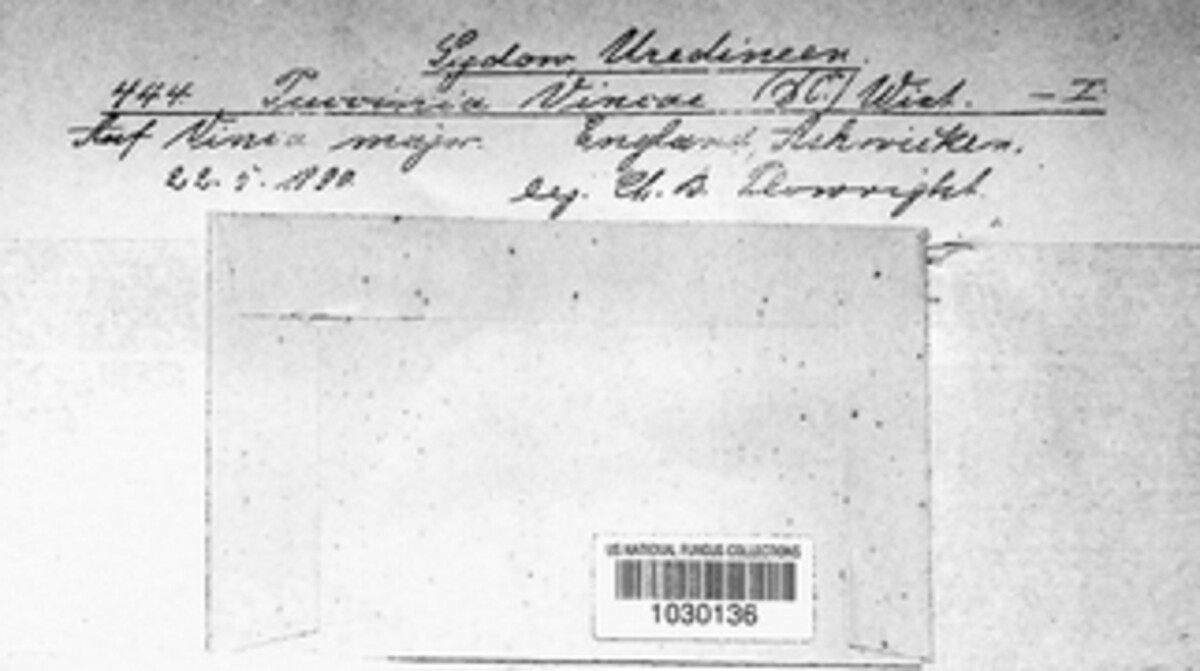 Sydow, Uredineen.
444. Puccinia Vincae (DC.) Wint. – I.
Auf Vinca major. England, Ashwicken.
22. 5. 1890. leg. Ch. B. Plowright.
US NATIONAL FUNGUS COLLECTIONS
1030136